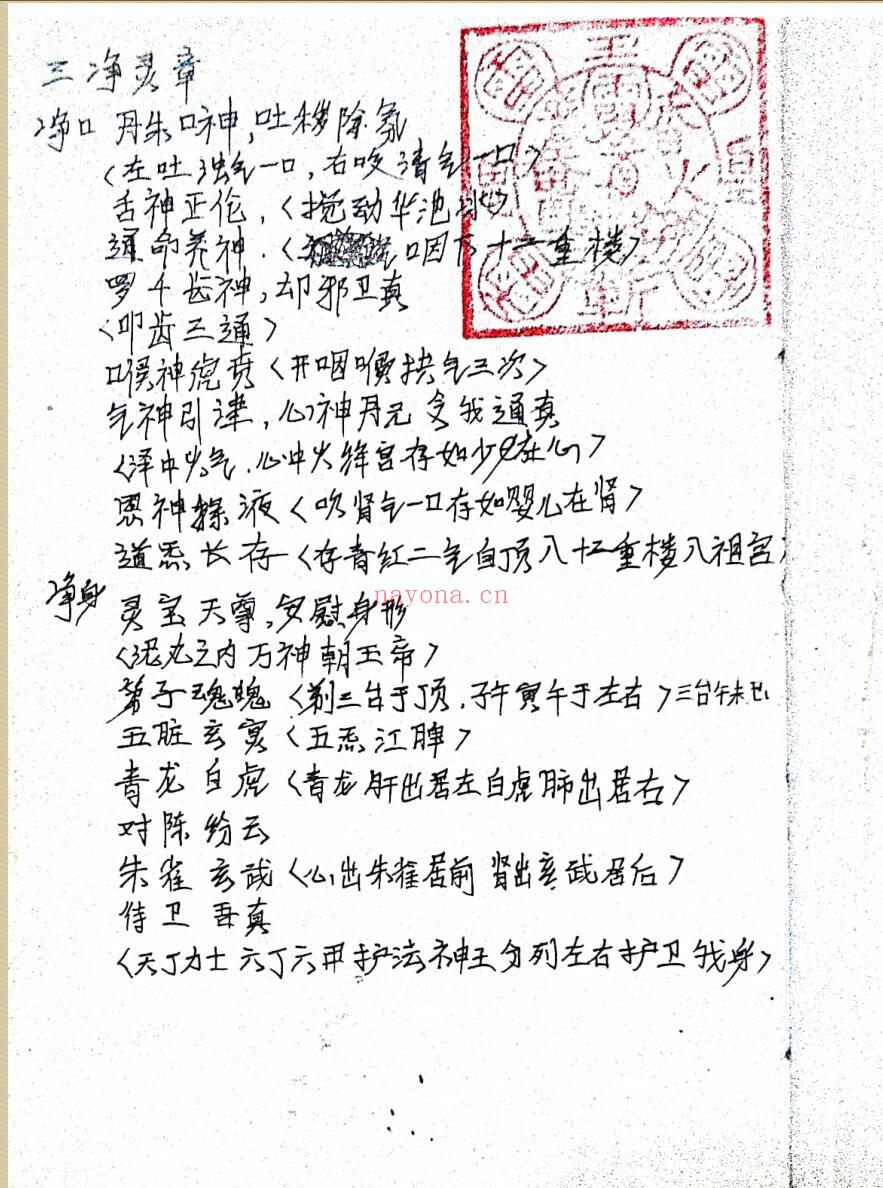 三净灵章
净口 丹朱口神,吐秽除氛
<左吐浊气一口,右咬清气一口>
舌神正伦,<搅动华池水>
通命养神.<咽下十二重楼>
罗千齿神,却邪卫真
<叩齿三通>
喉神虎贲<开咽喉扶气三次>
气神引津,心神丹元 令我通真
心中火绛宫存如少女在心>
思神操液<吹肾气一口存如婴儿在肾>
道炁长存<存青红二气自顶八十二重楼八祖宫>
净身 灵宝天尊,安慰身形
<泥丸之内万神朝玉帝>
弟子魂魄<剃三台于顶.子午寅午于左右>三台午未巳
五脏玄冥<五炁江脾>
青龙白虎<青龙肝出居左白虎肺出居右>
对陈纷云
朱雀玄武<心出朱雀居前 肾出玄武居后>
侍卫吾真
<天丁力士六丁六甲护法神王分列左右护卫我身>
nayona.cn